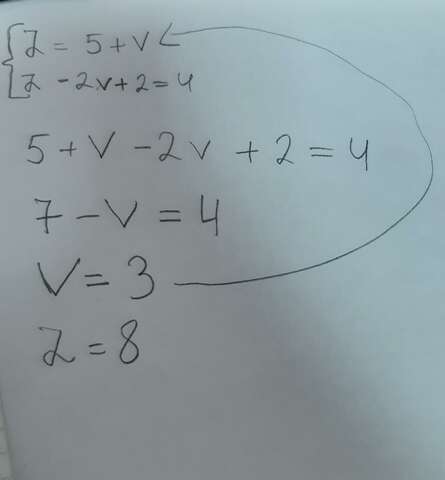 z = 5 + v
z - 2v + 2 = 4
5 + v - 2v + 2 = 4
7 - v = 4
v = 3
z = 8